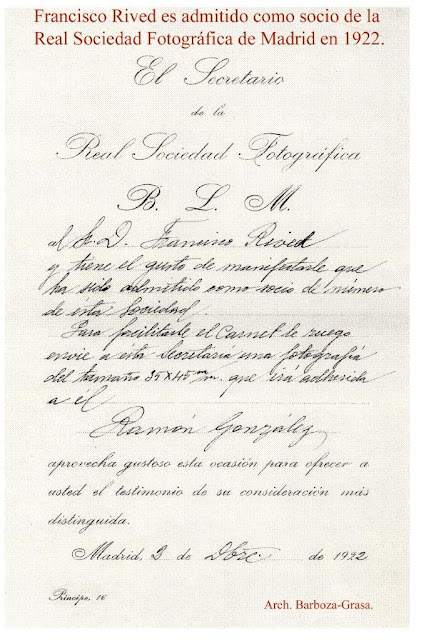 Francisco Rived es admitido como socio de la
Real Sociedad Fotográfica de Madrid en 1922.
El Secretario
de la
Real Sociedad Fotográfica
B. L. M.
al S. D. Francisco Rived
y tiene el gusto de manifestarle que
ha sido admitido como socio de número
de esta Sociedad.
Para facilitarle el Carnet le ruego
envie a esta Secretaria una fotografia
del tamaño 35 x 45 m/m. que irá adherida
a él
Ramón González
aprovecha gustoso esta ocasión para ofrecer a
usted el testimonio de su consideración más
distinguida.
Madrid, 3 de Dbre de 1922
Príncipe, 16
Arch. Barboza-Grasa.